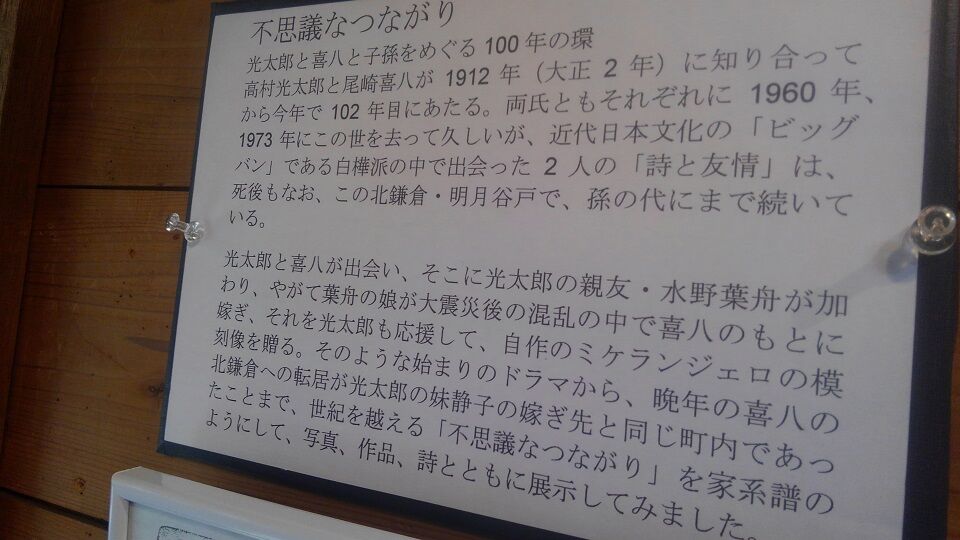 不思議なつながり
光太郎と喜八と子孫をめぐる 100 年の環
高村光太郎と尾崎喜八が 1912 年（大正 2 年）に知り合って
から今年で 102 年目にあたる。両氏ともそれぞれに 1960 年、
1973 年にこの世を去って久しいが、近代日本文化の「ビッグ
バン」である白樺派の中で出会った 2 人の「詩と友情」は、
死後もなお、この北鎌倉・明月谷戸で、孫の代にまで続いて
いる。
光太郎と喜八が出会い、そこに光太郎の親友・水野葉舟が加
わり、やがて葉舟の娘が大震災後の混乱の中で喜八のもとに
嫁ぎ、それを光太郎も応援して、自作のミケランジェロの模
刻像を贈る。そのような始まりのドラマから、晩年の喜八の
北鎌倉への転居が光太郎の妹静子の嫁ぎ先と同じ町内であっ
たことまで、世紀を越える「不思議なつながり」を家系譜の
ようにして、写真、作品、詩とともに展示してみました。